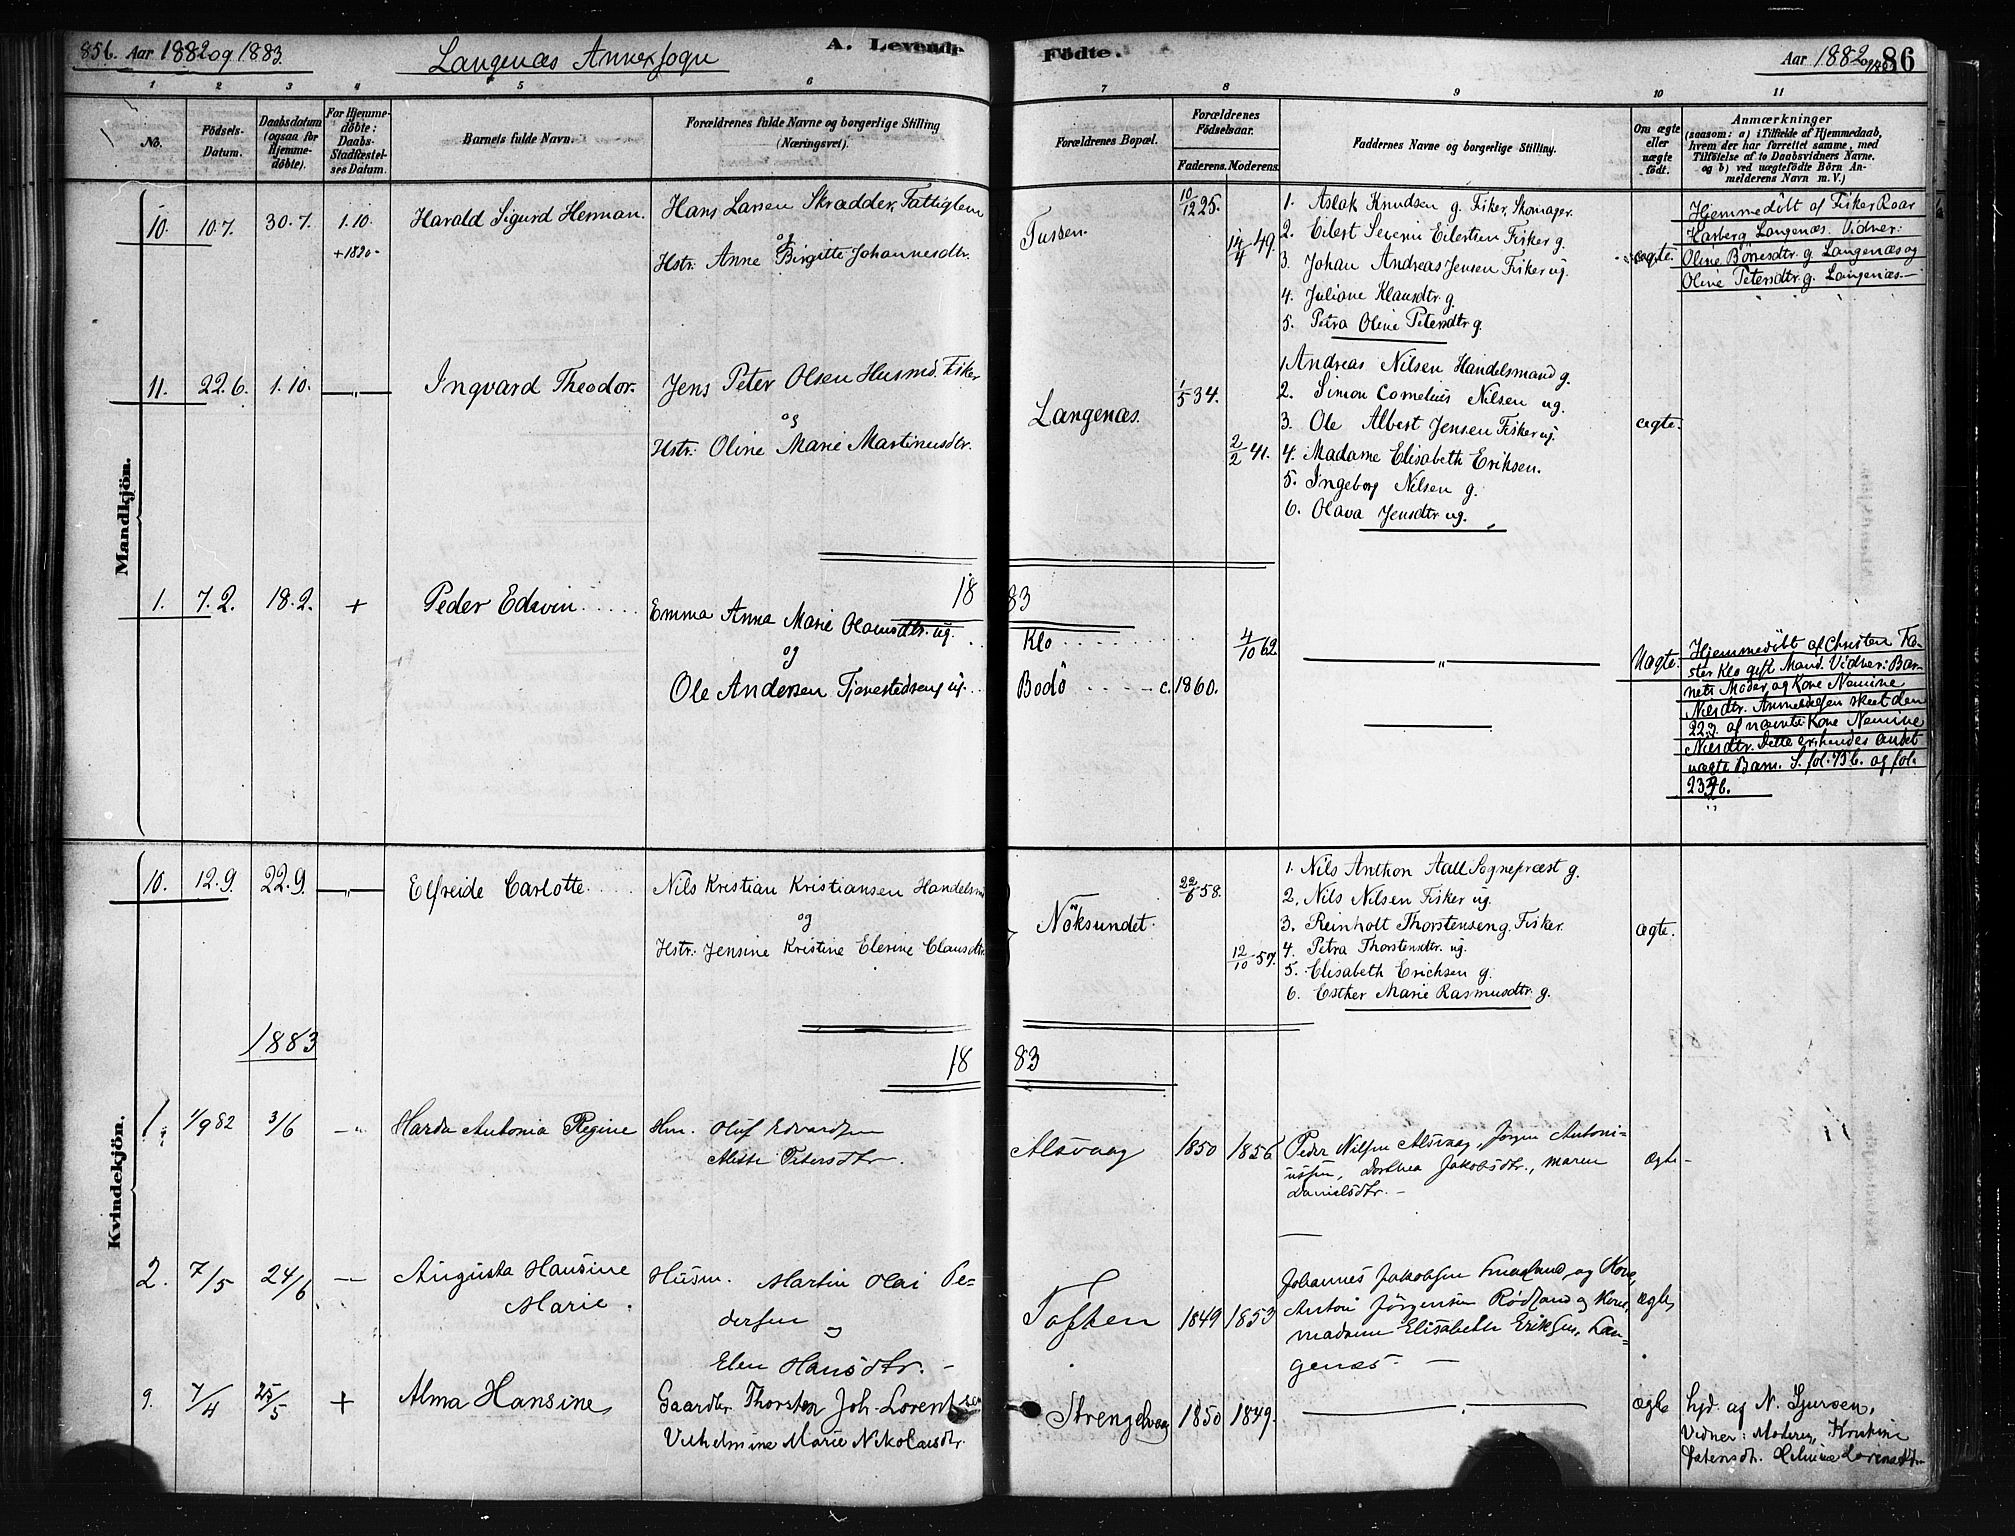 85b. Aar 1882 og 1883.
Langenæs Annexsogn
A. Levende Fødte.
Aar 1882 og 1883 86
1 2 3 4 5 6 7 8 9 10 11
No.
Fødsels-
Datum.
Daabsdatum
(ogsaa for
Hjemme-
døbte).
For Hjemme-
døbte:
Daabs-
Stadfæstel-
ses Datum.
Barnets fulde Navn.
Forældrenes fulde Navne og borgerlige Stilling
(Næringsvei).
Forældrenes Bopæl.
Forældrenes
Fødselsaar.
Faderens. Moderens.
Faddernes Navne og borgerlige Stilling.
Om ægte
eller
uægte
født.
Anmærkninger
(saasom: a) i Tilfælde af Hjemmedaab,
hvem der har forrettet samme, med
Tilføielse af to Daabsvidners Navne,
og b) ved uægtefødte Børn An-
melderens Navn m. V.)
Mandkjön.
10. 10.7. 30.7. 1.10. Harald Sigurd Herman. Hans Larsen Skrædder, Fattiglem
+1820-
og
Hstr: Anne Birgitte Johannesdtr.
Tussen.
10/12 25.
14/4 49.
1. Aslak Knudsen g. Fisker, Skomager.
2. Eilert Severin Eilertsen Fisker g.
3. Johan Andreas Jensen Fisker ug.
4. Juliane Klausdtr. g.
5. Petra Oline Petersdtr g.
ægte.
Hjemmedøbt af Fisker Roar
Harberg Langenæs. Vidner:
Oline Börresdtr. g. Langenæs og
Oline Petersdtr. g. Langenæs.-
11. 22.6. 1.10. —"— Ingvard Theodor. Jens Peter Olsen Husmd. Fisker
og
Hstr: Oline Marie Martinusdtr.
Langenæs.
1/5 34.
2/2 41.
1. Andreas Nilsen Handelsmand g.
2. Simon Cornelius Nilsen ug.
3. Ole Albert Jensen Fisker ug.
4. Madame Elisabeth Eriksen.
5. Ingeborg Nilsen g.
6. Olava Jensdtr. ug.
ægte.
1883
1. 7.2. 18.2. + Peder Edvin..... Emma Anna Marie Olausdtr. ug.
og
Ole Andersen Tjenestedreng ug.
Klo
Bodö
4/10 62
c. 1860.
—"—
Uægte.
Hjemmedøbt af Christen To-
ster Klo gift Mand. Vidner: Bar-
nets Moder og Kone Nemine
Nilsdtr. Anmeldelsen skeet den
22.3. af nævnte Kone Nemine
Nilsdtr. Dette er hendes andet
uægte Barn. S. fol. 75b. og fol.
Kvindekjön.
10. 12.9. 22.9. —"— Elfreide Carlotte. Nils Kristian Kristiansen Handelsmd
og
Hstr: Jensine Kristine Elerine Clausdtr.
Nöksundet.
22/6 58.
12/10 57.
1. Nils Anthon Aall Sognepræst g.
2. Nils Nilsen Fisker ug.
3. Reinholt Thorstensen g. Fisker.
4. Petra Thorstensdtr. ug.
5. Elisabeth Erichsen g.
6. Esther Marie Rasmusdtr. g.
ægte.
1883
1883
1. 1/9 82 3/6 —"— Harda Antonia Regine Hm. Oluf Edvardsen
Mette Petersdtr.
Alsvaag 1850 1856
Peder Nilsen Alsvaag, Jörgen Antoni-
ussen, Dorthea Jakobsdtr., Maren
Danielsdtr. —
ægte —
2. 7/5 24/6 — Augusta Hansine
Marie.
Husm. Martin Olai Pe-
dersen og
Elen Hansdtr. —
Toften 1849 1853
Johannes Jakobsen Smaaland og Kone,
Anton Jörgensen Rödsand og Kone,
madame Elisabeth Eriksen, Lan-
genæs. —
ægte
9. 7/4 25/5 + Alma Hansine
Gaardbr. Thorsten Joh. Lorentsen
Vilhelmine Marie Nikolaisdtr.
Strengelvaag 1850 1849.
ægte
hjd. af N. Sjursen,
Vidner: Moderen, Kristine
Petersdtr. Helmine Lorensdtr.